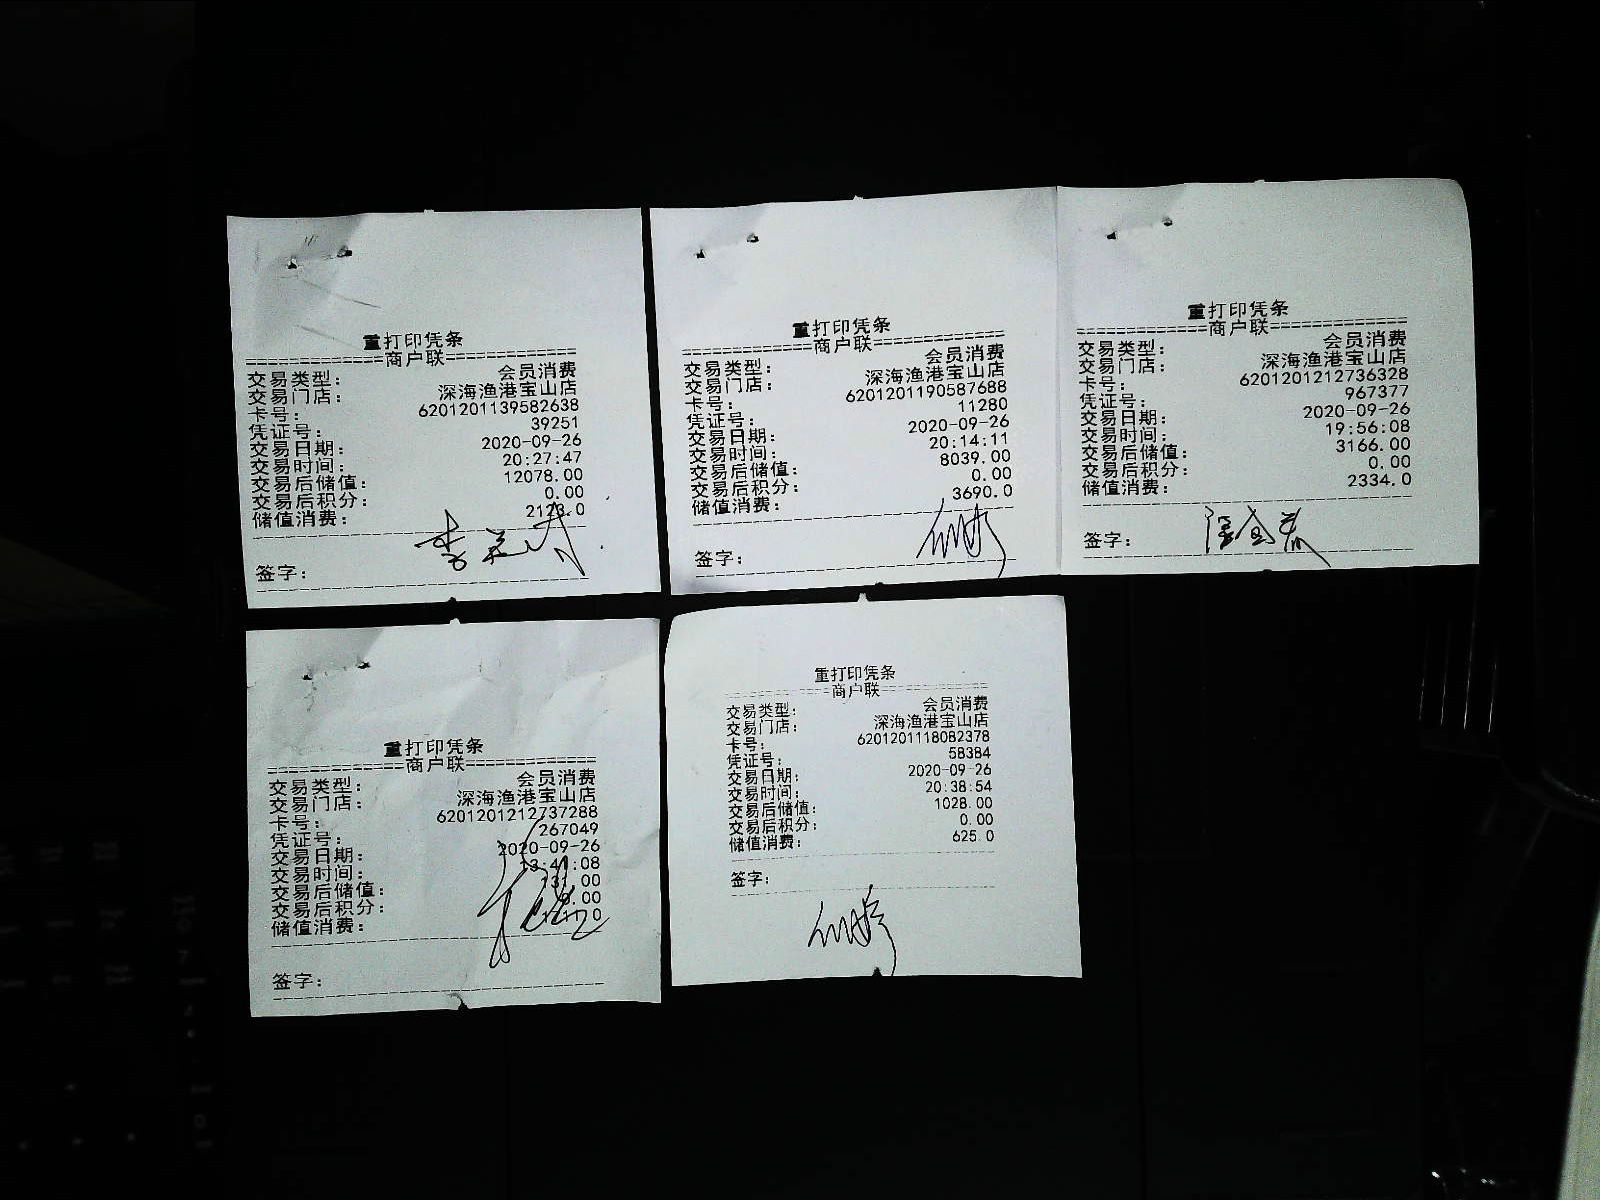 重打印凭条
================商户联================
交易类型： 会员消费
交易门店： 深海渔港宝山店
卡号： 6201201139582638
凭证号： 39251
交易日期： 2020-09-26
交易时间： 20:27:47
交易后储值： 12078.00
交易后积分： 0.00
储值消费： 2123.0
签字：
重打印凭条
================商户联================
交易类型： 会员消费
交易门店： 深海渔港宝山店
卡号： 6201201190587688
凭证号： 11280
交易日期： 2020-09-26
交易时间： 20:14:11
交易后储值： 8039.00
交易后积分： 0.00
储值消费： 3690.0
签字：
重打印凭条
================商户联================
交易类型： 会员消费
交易门店： 深海渔港宝山店
卡号： 6201201212736328
凭证号： 967377
交易日期： 2020-09-26
交易时间： 19:56:08
交易后储值： 3166.00
交易后积分： 0.00
储值消费： 2334.0
签字：
重打印凭条
================商户联================
交易类型： 会员消费
交易门店： 深海渔港宝山店
卡号： 6201201212737288
凭证号： 267049
交易日期： 2020-09-26
交易时间： 13:41:08
交易后储值：
交易后积分： 0.00
储值消费：
签字：
重打印凭条
================商户联================
交易类型： 会员消费
交易门店： 深海渔港宝山店
卡号： 6201201118082378
凭证号： 58384
交易日期： 2020-09-26
交易时间： 20:38:54
交易后储值： 1028.00
交易后积分： 0.00
储值消费： 625.0
签字：